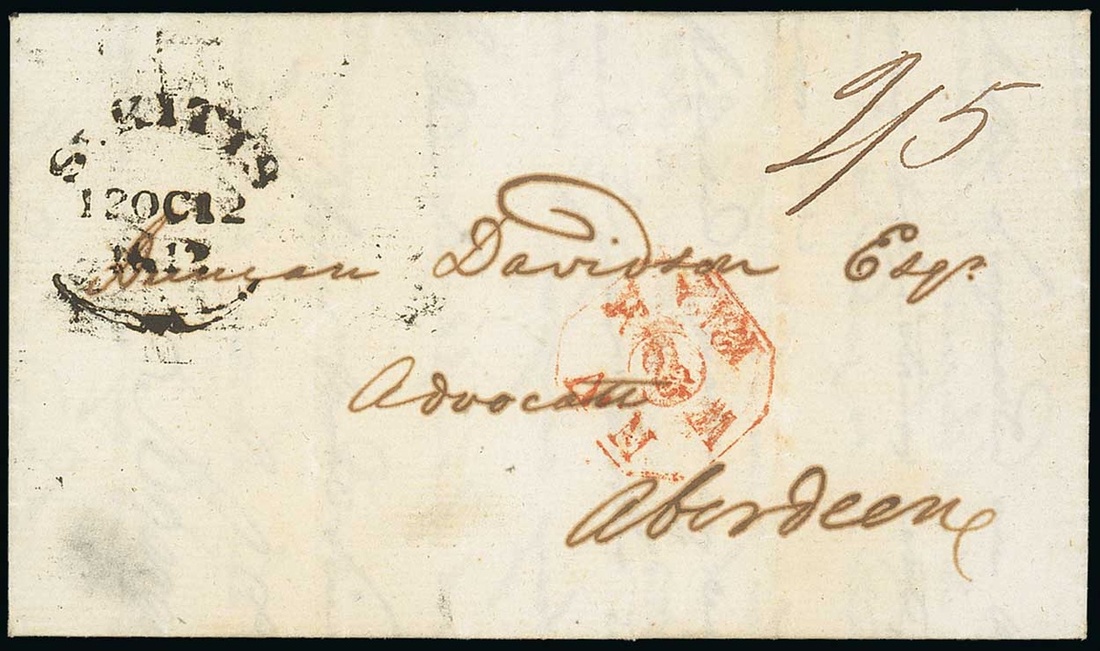 2/5
ST KITTS
12OC12
1812
Duncan Davidson Esqr.
Advocate
Aberdeen